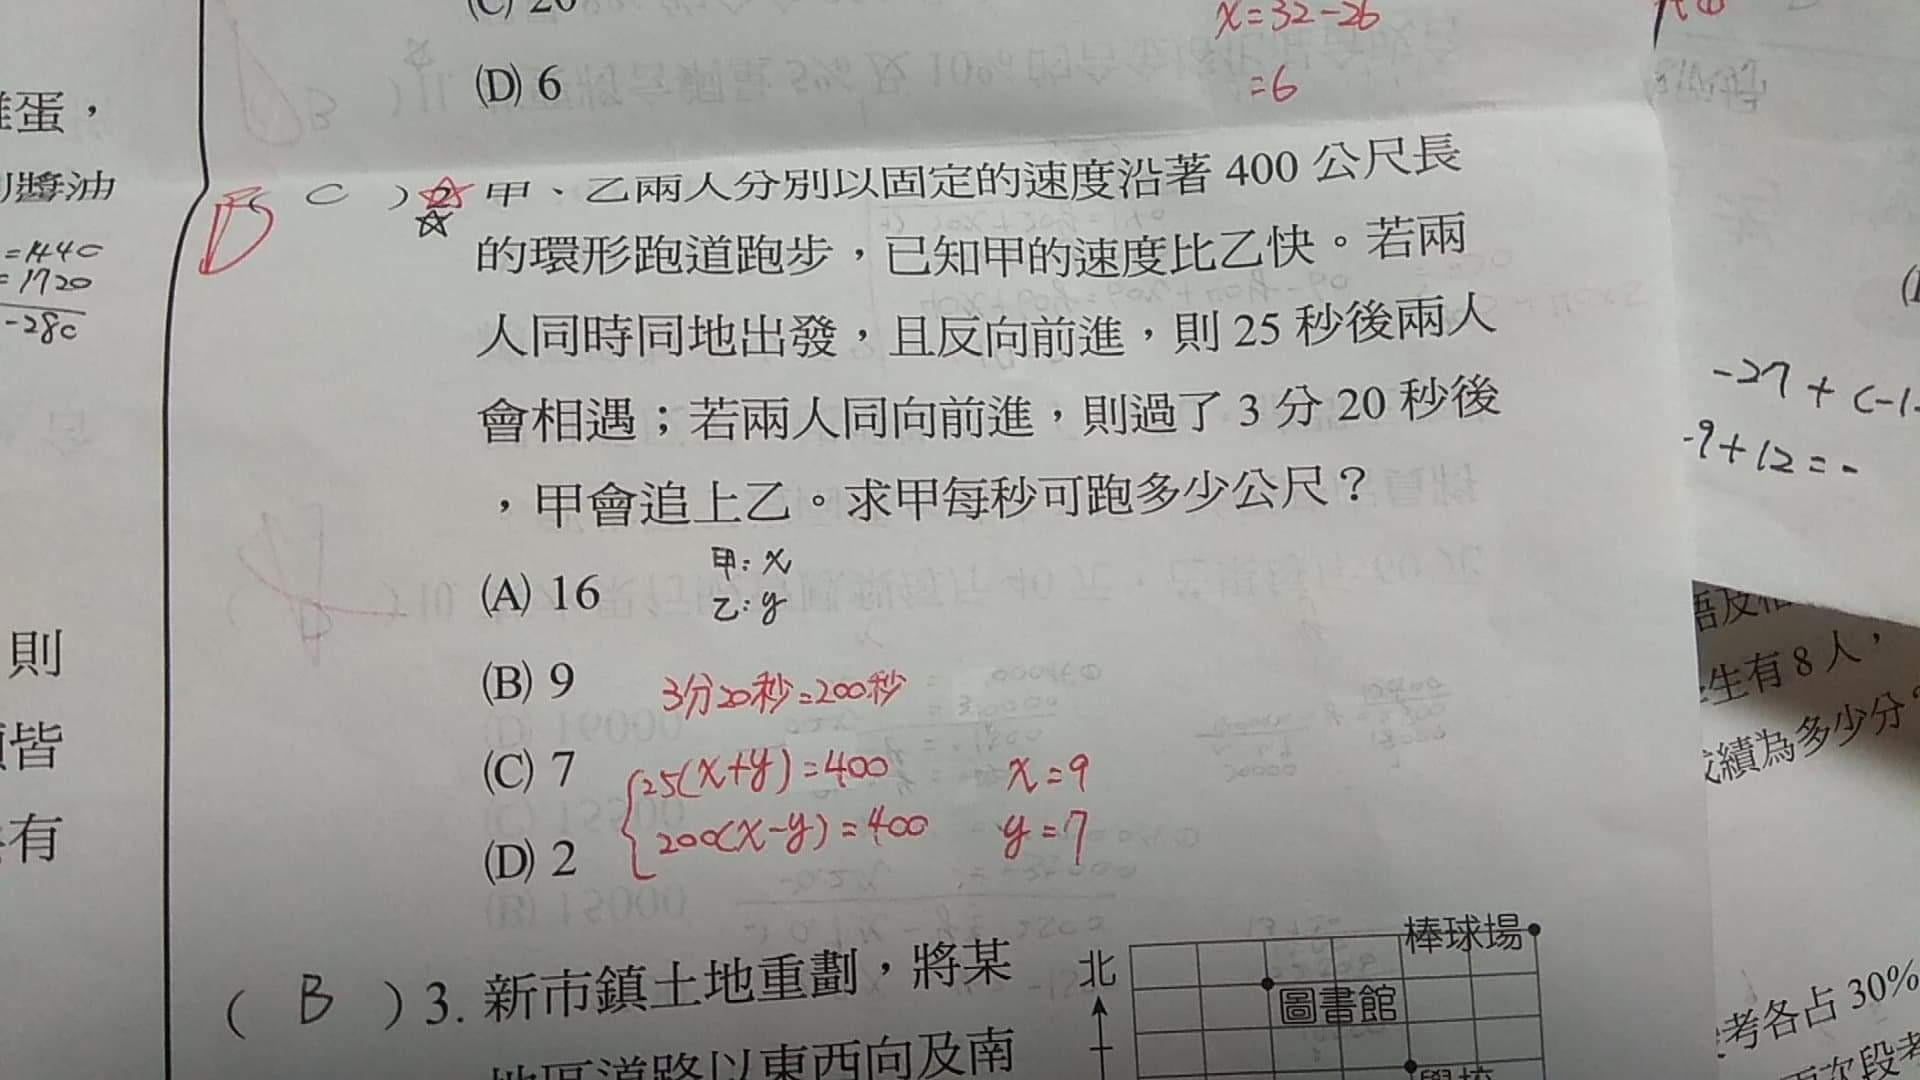 (C) 20
x=32-26
(D) 6
=6
雞蛋，
醬油
=1440
=1720
-280
( C ) 2 甲、乙兩人分別以固定的速度沿著 400 公尺長
B
的環形跑道跑步，已知甲的速度比乙快。若兩
人同時同地出發，且反向前進，則 25 秒後兩人
會相遇；若兩人同向前進，則過了 3 分 20 秒後
，甲會追上乙。求甲每秒可跑多少公尺？
甲：x
乙：y
(A) 16
(B) 9
3分20秒=200秒
(C) 7
25(x+y)=400
x=9
200(x-y)=400
y=7
(D) 2
則
皆
有
( B ) 3. 新市鎮土地重劃，將某
地區道路以東西向及南
北
棒球場
圖書館
學校
-27+(-1
-9+12=-
生有 8 人，
成績為多少分？
考各占 30%
兩次段考